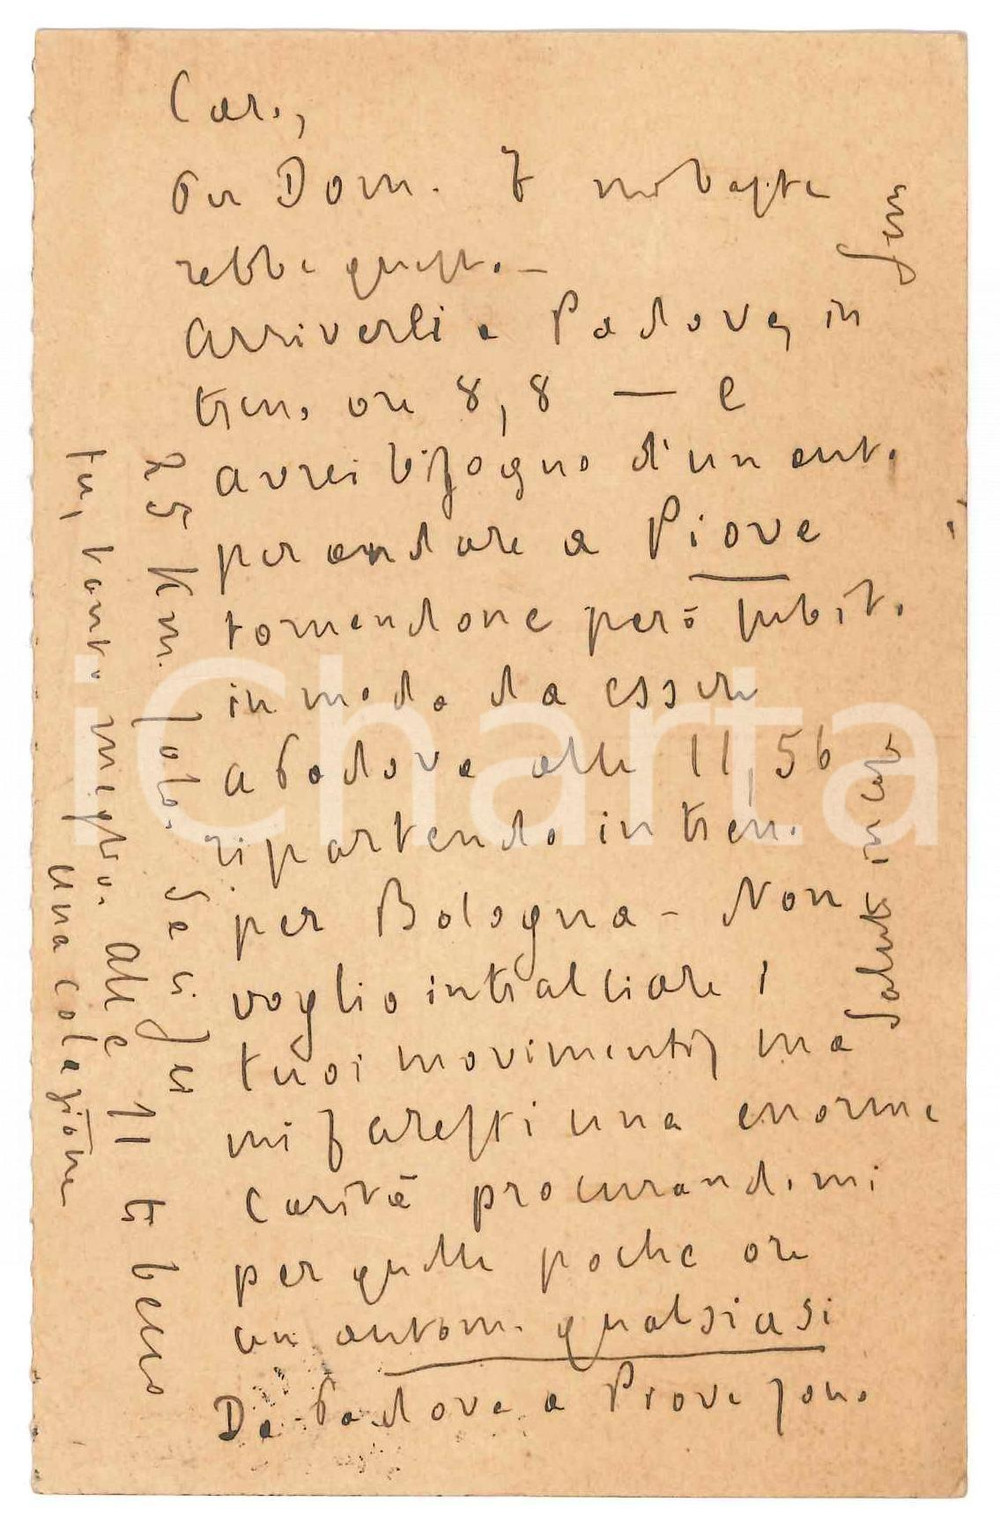 Caro,
Per Dom. 7 mi baste
rebbe questo. —
Arriverei a Padova, in
treno ore 8,8 — e
avrei bisogno d'un auto
per andare a Piove
tornandone però subito
in modo da essere
a Padova alle 11,56
ripartendo in treno
per Bologna - Non
voglio intralciare i
tuoi movimenti, ma
mi faresti una enorme
carità procurandomi
per quelle poche ore
un autom. qualsiasi
Da Padova a Piove sono
25 Km. solo. Se ci sei
tu, tanto meglio. Alle 11 ti becco
una colazione
Saluti in casa
iCharta